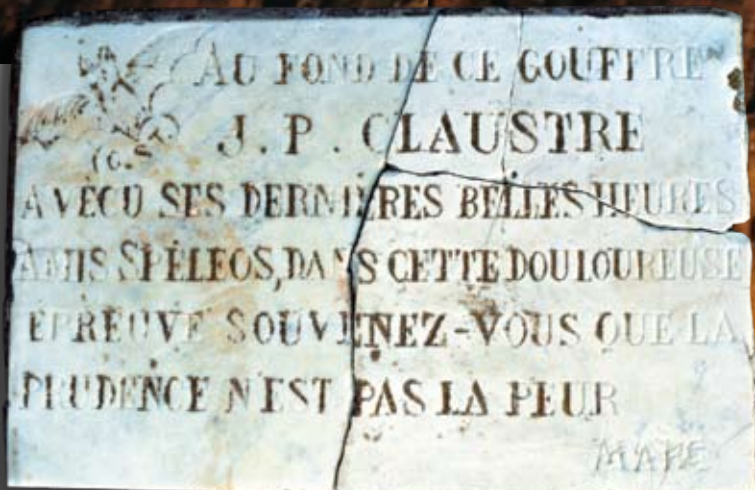 AU FOND DE CE GOUFFRE
J. P. CLAUSTRE
(G.ST)
A VÉCU SES DERNIÈRES BELLES HEURES
AMIS SPÉLÉOS, DANS CETTE DOULOUREUSE
ÉPREUVE SOUVENEZ-VOUS QUE LA
PRUDENCE N'EST PAS LA PEUR